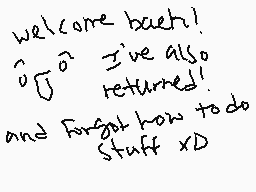 welcome back!
I've also
returned!
and forgot how to do
stuff xD